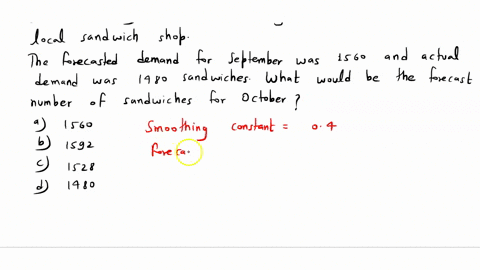 local sandwich shop.
The forecasted demand for September was 1560 and actual
demand was 1480 sandwiches. What would be the forecast
number of sandwiches for October?
a) 1560
b) 1592
c) 1528
d) 1480
Smoothing constant = 0.4
foreca